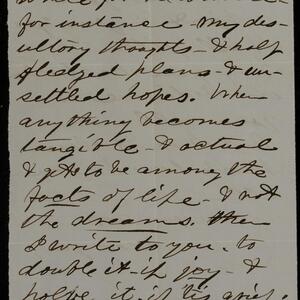 for instance - my des-
ultory thoughts - & half
fledged plans - & un-
settled hopes. When
anything becomes
tangible - & actual
& gets to be among the
facts of life - & not
the dreams. then
I write to you - to
double it - if joy - &
halve it, if 'tis grief